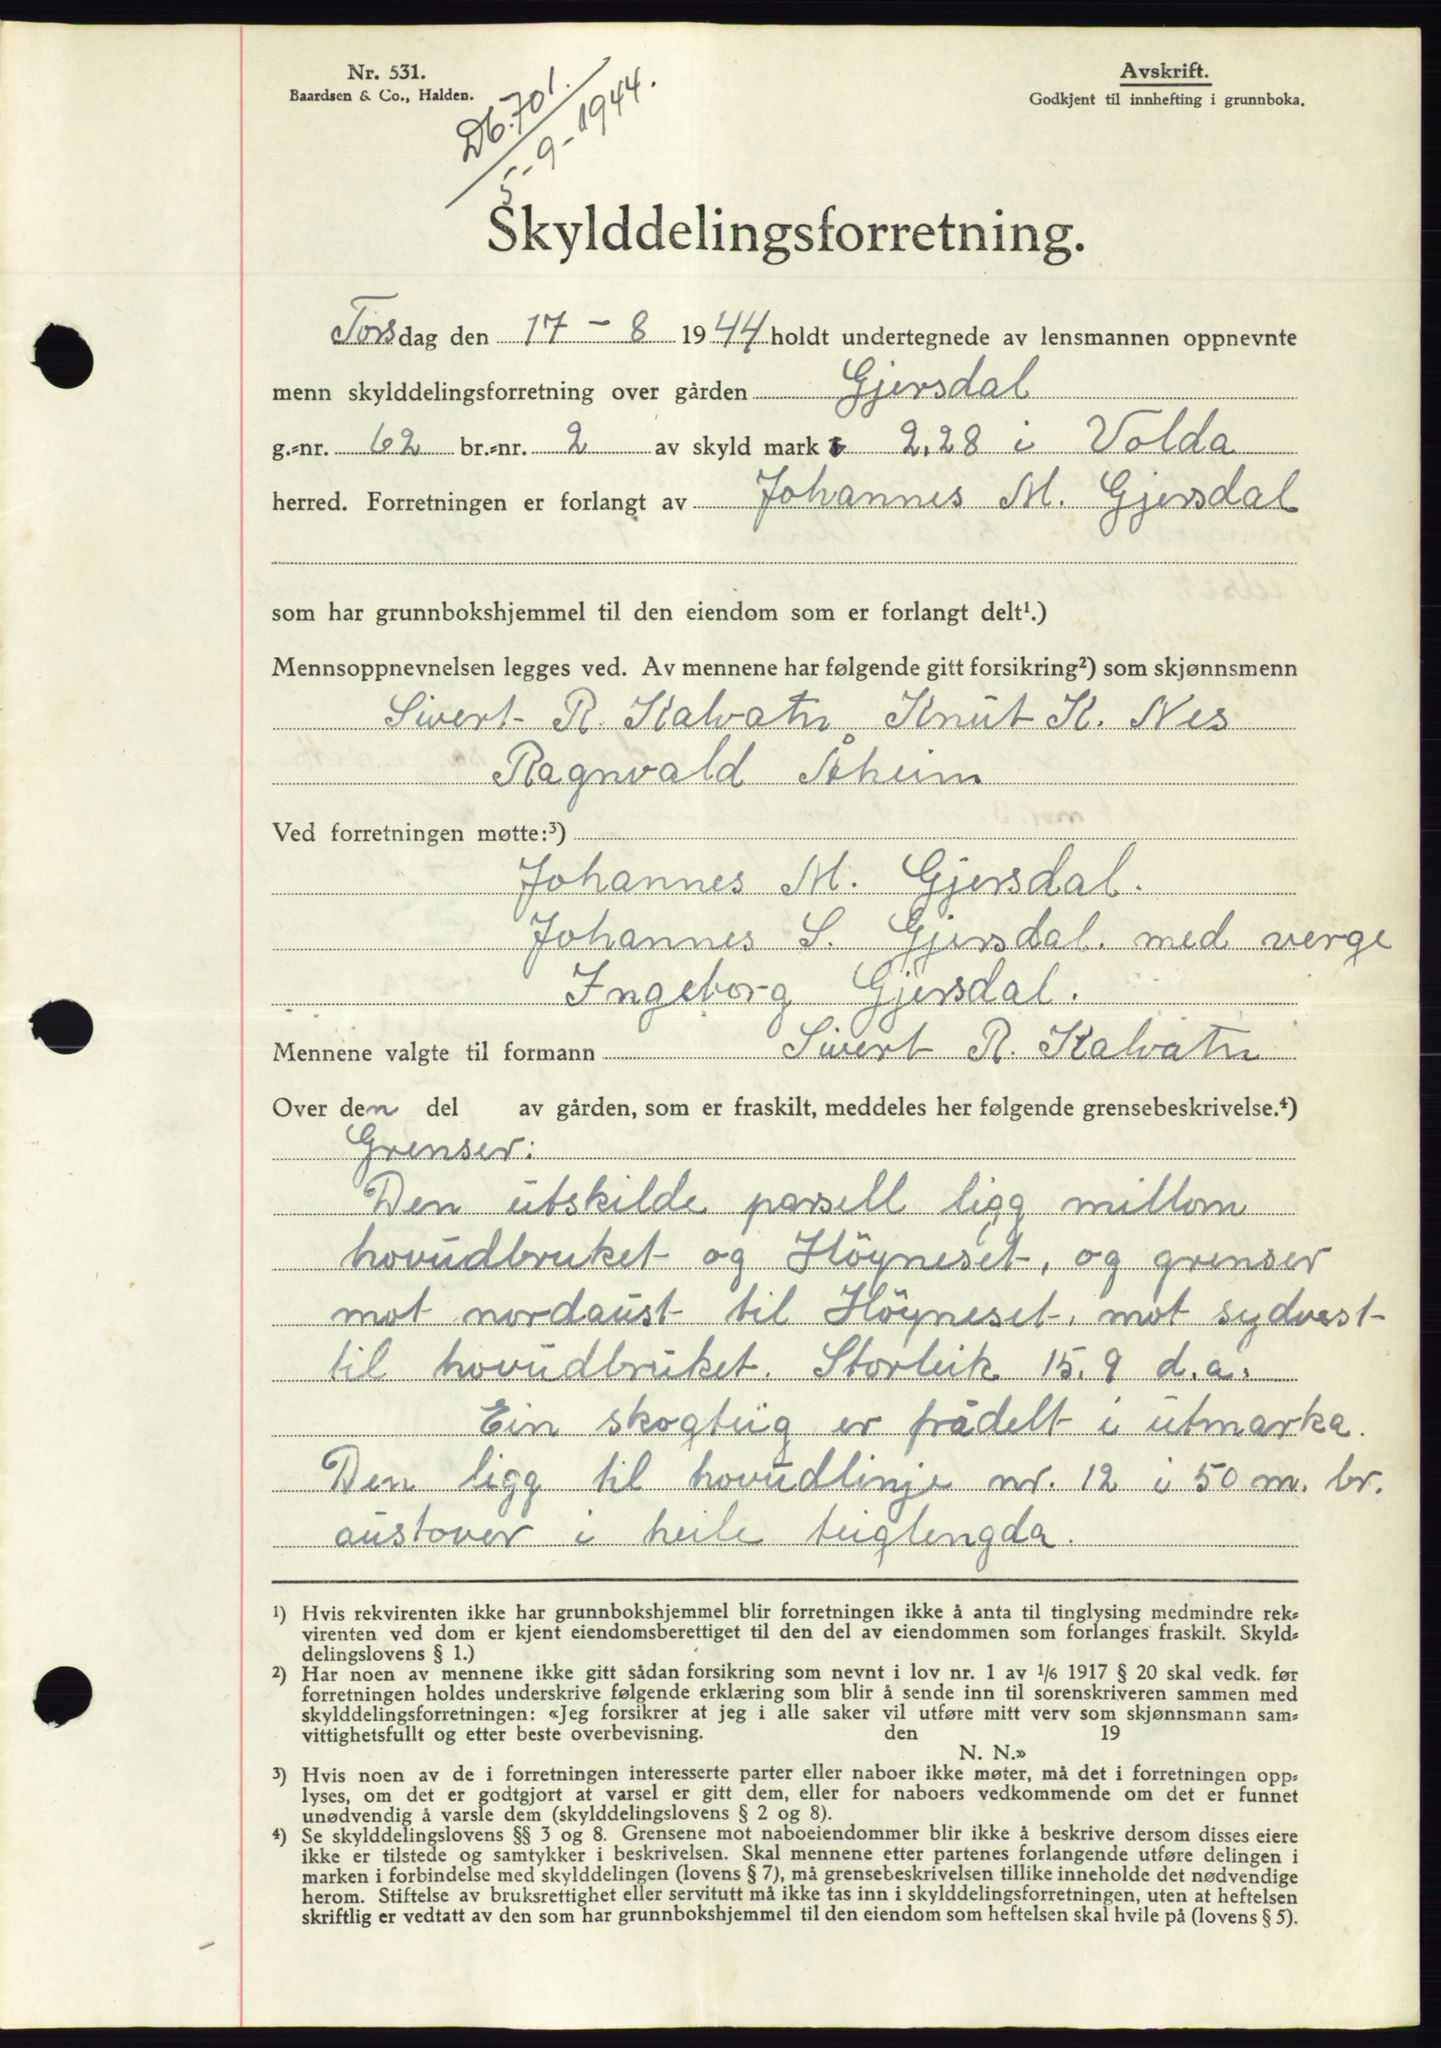 Nr. 531.
Baardsen & Co., Halden.
Db. 701.
5-9-1944.
Avskrift.
Godkjent til innhefting i grunnboka.
Skylddelingsforretning.
Torsdag den 17 - 8 1944 holdt undertegnede av lensmannen oppnevnte
menn skylddelingsforretning over gården Gjersdal
g.=nr. 62 br.=nr. 2 av skyld mark 2,28 i Volda
herred. Forretningen er forlangt av Johannes M. Gjersdal
som har grunnbokshjemmel til den eiendom som er forlangt delt¹.)
Mennsoppnevnelsen legges ved. Av mennene har følgende gitt forsikring²) som skjønnsmenn
Sivert R. Kalvatn Knut K. Nes
Ragnvald Åheim
Ved forretningen møtte:³)
Johannes M. Gjersdal.
Johannes S. Gjersdal. med verge
Ingeborg Gjersdal.
Mennene valgte til formann Sivert R. Kalvatn
Over den del av gården, som er fraskilt, meddeles her følgende grensebeskrivelse.⁴)
Grenser:
Den utskilde parsell ligg millom
hovudbruket og Höyneset, og grenser
mot nordaust til Höyneset, mot sydvest
til hovudbruket. Storleik 15,9 d.a.
Ein skogteig er frådelt i utmarka.
Den ligg til hovudlinje nr. 12 i 50 m. br.
austover i heile teiglengda.
¹) Hvis rekvirenten ikke har grunnbokshjemmel blir forretningen ikke å anta til tinglysing medmindre rek=
virenten ved dom er kjent eiendomsberettiget til den del av eiendommen som forlanges fraskilt. Skyld=
delingslovens § 1.)
²) Har noen av mennene ikke gitt sådan forsikring som nevnt i lov nr. 1 av 1/6 1917 § 20 skal vedk. før
forretningen holdes underskrive følgende erklæring som blir å sende inn til sorenskriveren sammen med
skylddelingsforretningen: «Jeg forsikrer at jeg i alle saker vil utføre mitt verv som skjønnsmann sam=
vittighetsfullt og etter beste overbevisning. den 19
N. N.»
³) Hvis noen av de i forretningen interesserte parter eller naboer ikke møter, må det i forretningen opp=
lyses, om det er godtgjort at varsel er gitt dem, eller for naboers vedkommende om det er funnet
unødvendig å varsle dem (skylddelingslovens § 2 og 8).
⁴) Se skylddelingslovens §§ 3 og 8. Grensene mot naboeiendommer blir ikke å beskrive dersom disses eiere
ikke er tilstede og samtykker i beskrivelsen. Skal mennene etter partenes forlangende utføre delingen i
marken i forbindelse med skylddelingen (lovens § 7), må grensebeskrivelsen tillike inneholde det nødvendige
herom. Stiftelse av bruksrettighet eller servitutt må ikke tas inn i skylddelingsforretningen, uten at heftelsen
skriftlig er vedtatt av den som har grunnbokshjemmel til den eiendom som heftelsen skal hvile på (lovens § 5).